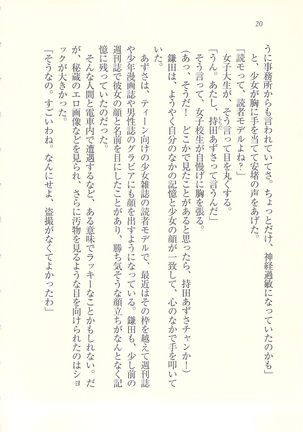 20
う事務所からも言われていてさ。ちょっとだけ、神経過敏になっていたのかも」
と、少女が胸に手を当てて安堵の声をあげた。
「読モって、読者モデルよね？」
女子大生が、そう言って目を丸くする。
「うん。あたし、持田あずさって言うんだ」
そう言って、女子校生が自慢げに胸を張る。
（あっ、そうだ！　どこかで見たことがあると思ったら、持田あずさチャンか―）
鎌田は、ようやく自分のなかの記憶と少女の顔が一致して、心のなかで手を叩いて
いた。
あずさは、ティーン向けの少女雑誌の読者モデルで、最近はその枠を越えて週刊誌
や少年漫画誌や男性誌のグラビアにも顔を出すようになっている。鎌田も、少し前の
週刊誌で彼女の顔と名前を目にしたことがあり、勝ち気そうな顔立ちがなんとなく記
憶に残っていたのだった。
そんな人間と電車内で遭遇するなど、ある意味でラッキーなことかもしれない。だ
が、秘蔵のエロ画像などを見られ、さらに汚物を見るような目を向けられたのはショ
ックが大きかった。
「そうなの。すごいわね。なんにせよ、盗撮がなくてよかったわ」